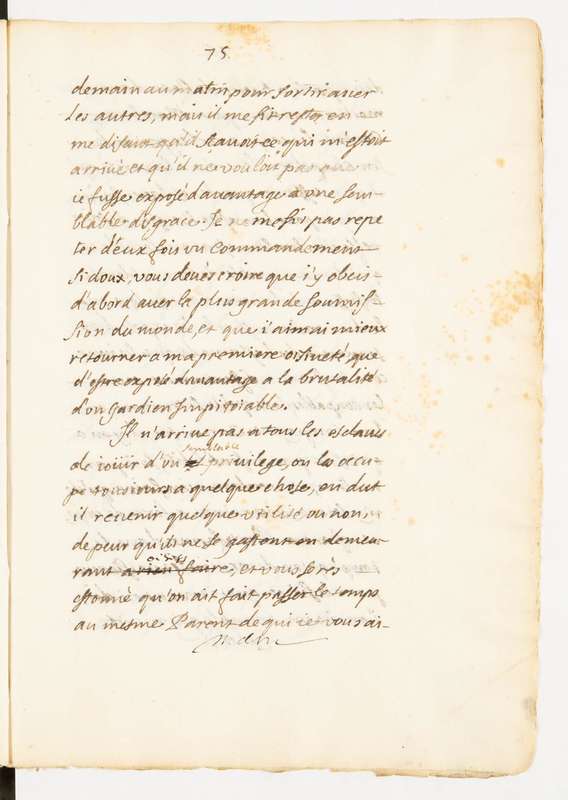 75
demain au matin pour sortir avec
les autres, mais il me fit rester en
me disant qu'il scavoit ce qui m'estoit
arrivé et qu'il ne vouloit pas que
ie fusse exposé davantage a une sem-
blable disgrace. Je ne me fis pas repe
ter deux fois un commandement
si doux, vous devés croire que i'y obeis
d'abord avec la plus grande soumis-
sion du monde, et que i'aimai mieux
retourner a ma premiere oisiveté que
d'estre exposé davantage a la brutalité
d'un gardien impitoiable.
Il n'arrive pas a tous les esclaves
semblable
de iouir d'un privilege, on les occu-
pe tousiours a quelque chose, en dut
il revenir quelque utilité ou non,
de peur qu'ils ne se gastent en demeu-
oisifs
rant a rien faire, et vous serés
estonné qu'on ait fait passer le temps
au mesme Parent de qui ie vous ai-